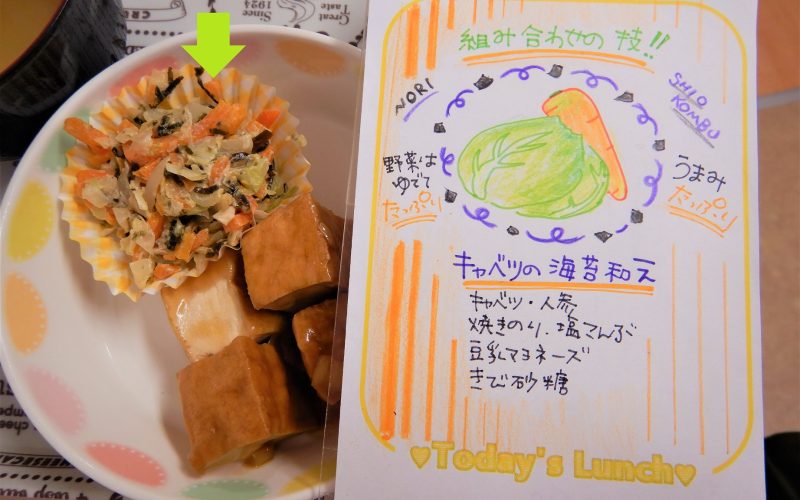 Since 1924
Great Taste
組み合わせの技!!
NORI
SHIO KOMBU
野菜は
ゆでて
たっぷり
うまみ
たっぷり
キャベツの海苔和え
キャベツ・人参
焼きのり・塩こんぶ
豆乳マヨネーズ
きび砂糖
♥Today's Lunch♥